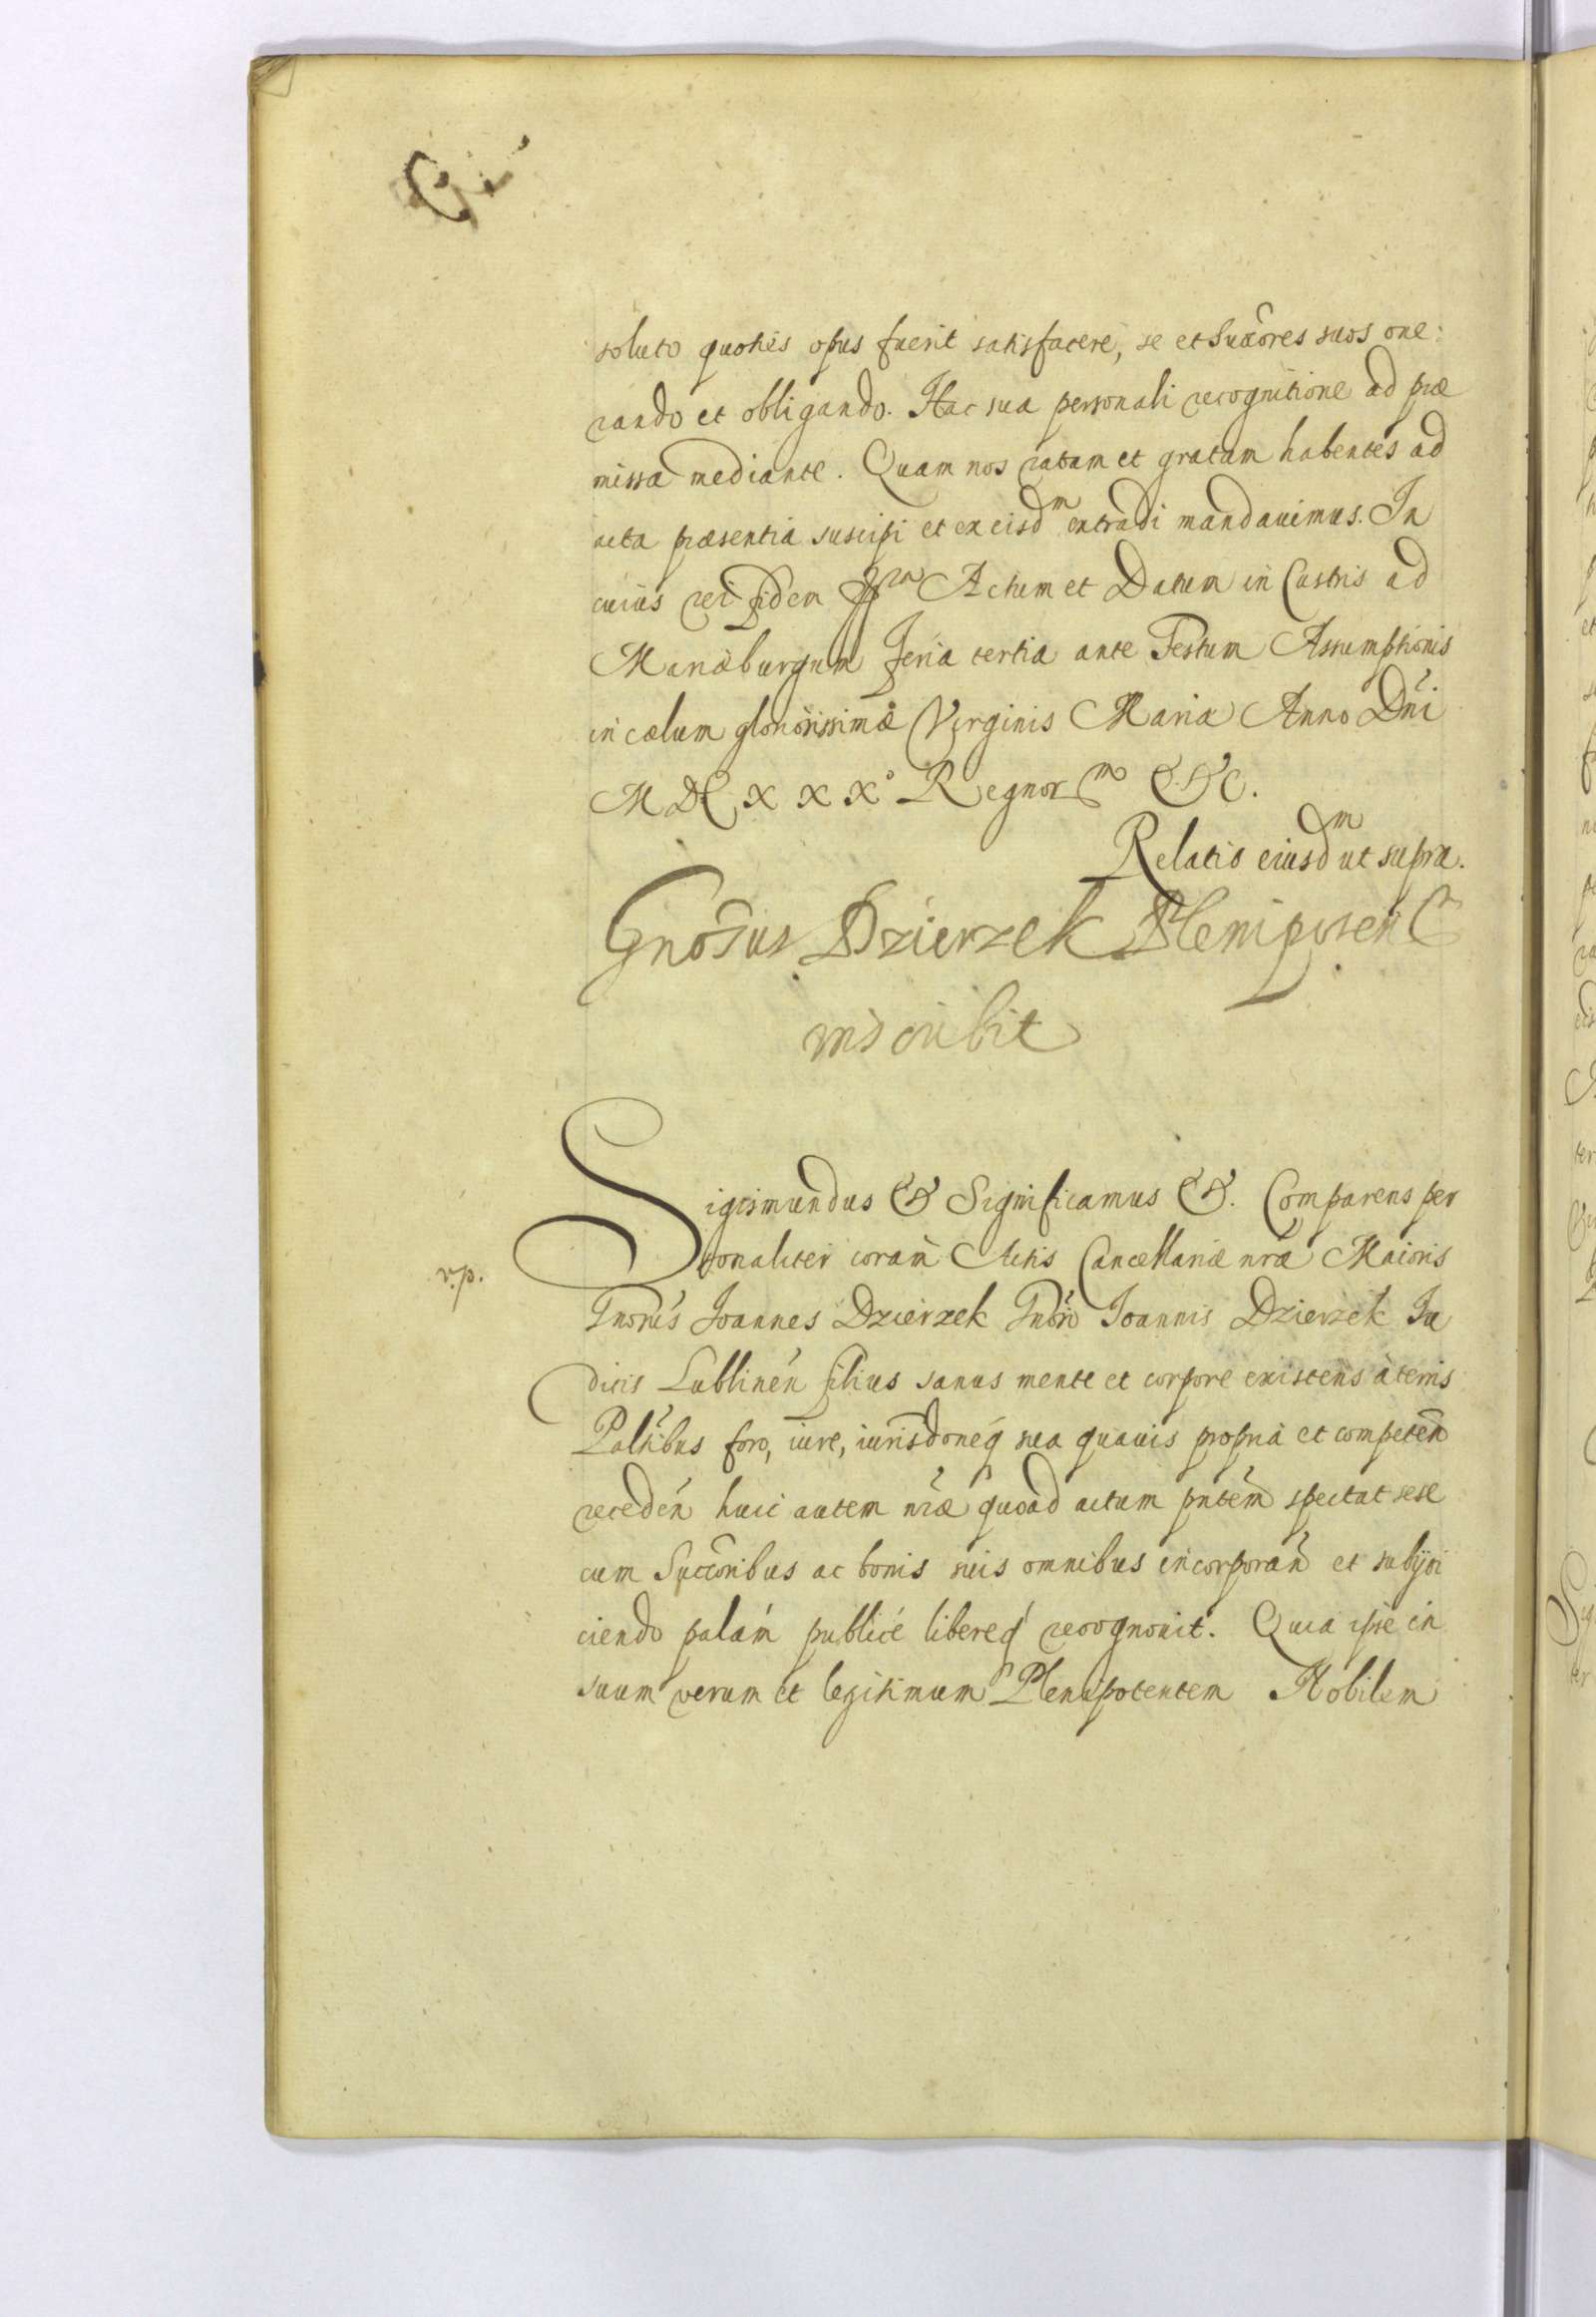 soluto quoties opus fuerit satisfacere, se et Succores suos one:
rando et obligando. Hac sua personali recognitione ad præ
missa mediante. Quam nos ratam et gratam habentes ad
acta præsentia suscipi et ex eisdm extradi mandauimus. In
cuius rei fidem Actum et Datum in Castris ad
Mariæburgum feria tertia ante Festum Assumptionis
in cælum gloriosissimæ Virginis Mariæ Anno Dni
MDCXXX° Regnorm &c.
Relatio eiusdm ut supra.
Gnosus Dzierzek Plenipoten
inscribit
Sigismundus & Significamus &. Comparens per
sonaliter coram Actis Cancellariæ nræ Maioris
v.p.
Gnosus Joannes Dzierzek Gnosi Joannis Dzierzek Ju
dicis Lublinen filius sanus mente et corpore existens à terris
Palibus foro, iure, iurisdoneq sua quauis propria et competen
receden huic autem nræ quoad actum pntem spectat sese
cum Succoribus ac bonis suis omnibus incorporan et subijci
ciendo palam publicè libereq recognouit. Quia ipse in
suum verum et legitimum Plenipotentem Nobilem